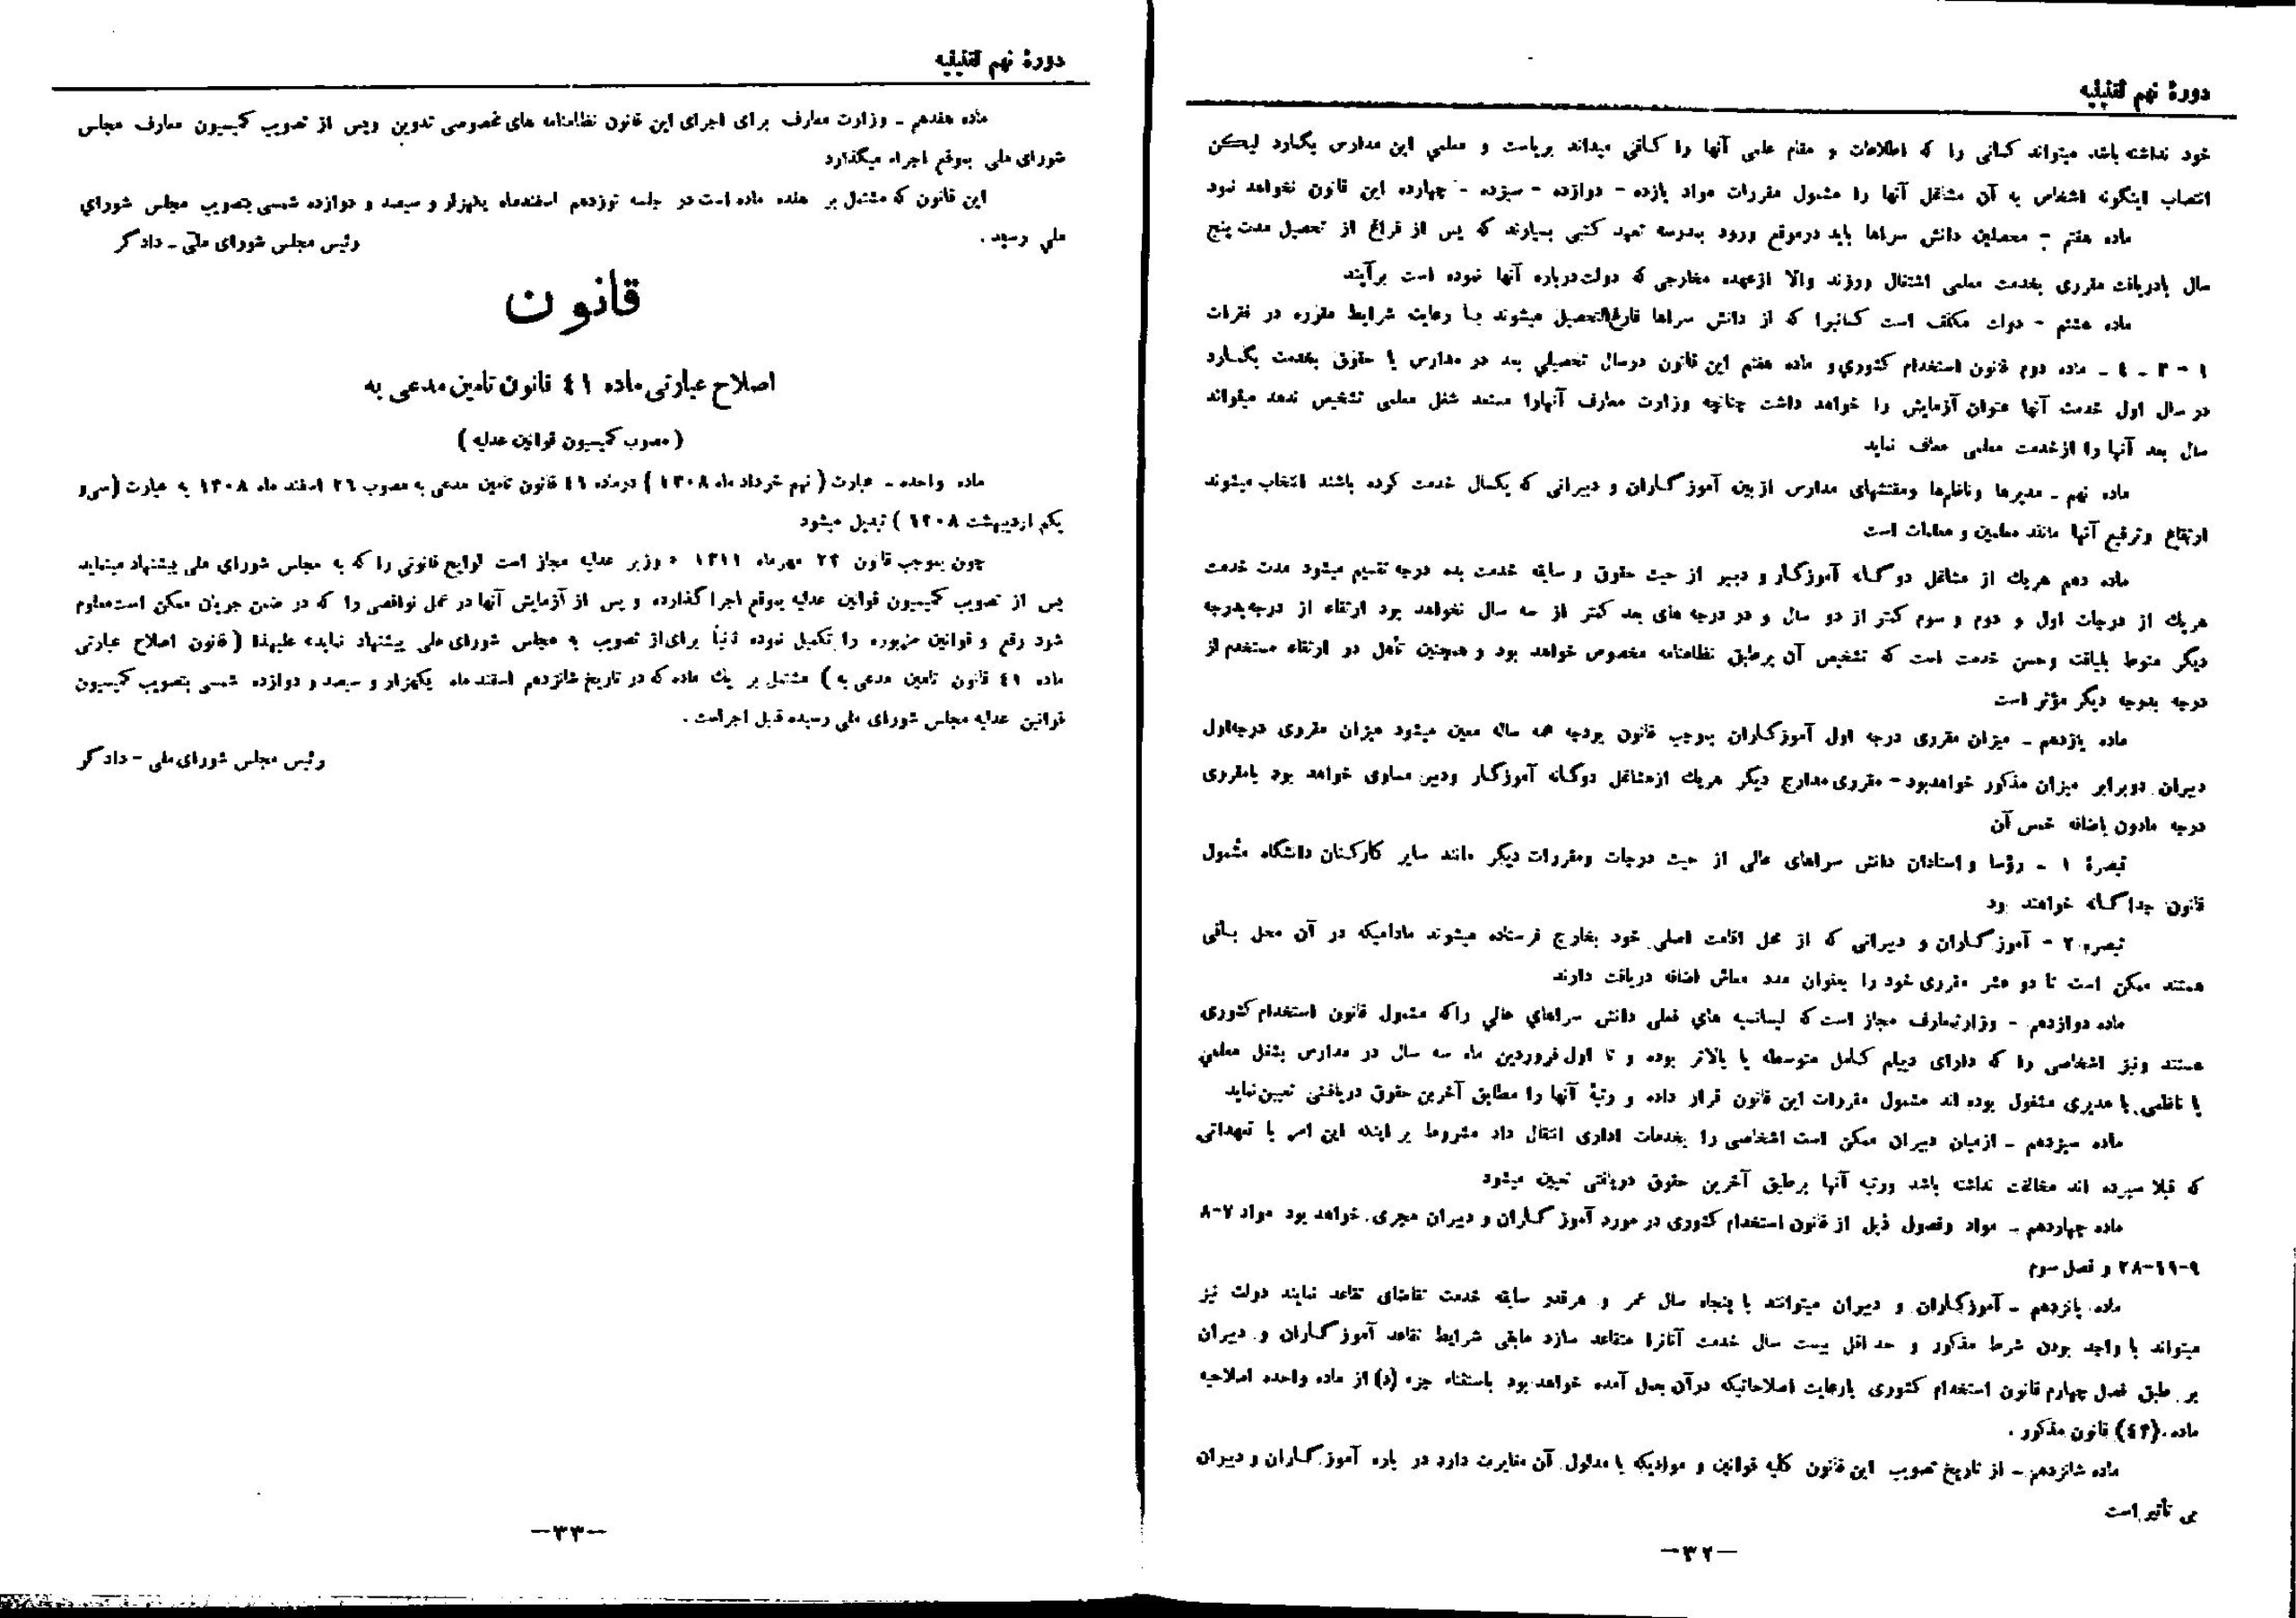 دورهٔ نهم تقنینیه
خود نداشته باشد میتواند کسانی را که اطلاعات و مقام علمی آنها را کافی میداند بریاست و معلمي این مدارس بگمارد لیکن
انتصاب اینگونه اشخاص به آن مشاغل آنها را مشمول مقررات مواد یازده - دوازده - سیزده - چهارده این قانون نخواهد نمود
ماده هفتم - محصلین دانش سراها باید درموقع ورود بمدرسه تعهد کتبی بسپارند که پس از فراغ از تحصیل مدت پنج
سال بادریافت مقرری بخدمت معلمی اشتغال ورزند والا ازعهده مخارجی که دولت درباره آنها نموده است برآیند
ماده هشتم - دولت مکلف است کسانیرا که از دانش سراها فارغ‌التحصیل میشوند با رعایت شرایط مقرره در فقرات
۱ - ۳ - ٤ - ماده دوم قانون استخدام کشوري و ماده هفتم این قانون درسال تحصیلي بعد در مدارس با حقوق بخدمت بگمارد
در سال اول خدمت آنها عنوان آزمایش را خواهد داشت چنانچه وزارت معارف آنهارا مستعد شغل معلمی تشخیص ندهد میتواند
سال بعد آنها را ازخدمت معلمی معاف نماید
ماده نهم - مدیرها وناظم‌ها ومفتشهای مدارس از بین آموزگاران و دبیرانی که یکسال خدمت کرده باشند انتخاب میشوند
ارتفاع وترفیع آنها مانند معلمین و معلمات است
ماده دهم هریك از مشاغل دوگانه آموزگار و دبیر از حیث حقوق و سابقه خدمت بده درجه تقسیم میشود مدت خدمت
هریك از درجات اول و دوم و سوم کمتر از دو سال و در درجه های بعد کمتر از سه سال نخواهد بود ارتقاء از درجه بدرجه
دیگر منوط بلیاقت وحسن خدمت است که تشخیص آن برطبق نظامنامه مخصوص خواهد بود و همچنین تأهل در ارتقاء مستخدم از
درجه بدرجه دیگر مؤثر است
ماده یازدهم - میزان مقرری درجه اول آموزگاران بموجب قانون بودجه همه ساله معین میشود میزان مقرری درجه‌اول
دبیران دوبرابر میزان مذکور خواهدبود - مقرری مدارج دیگر هریك ازمشاغل دوگانه آموزگار ودبیر مساوی خواهد بود بامقرری
درجه مادون باضافه خمس آن
تبصرهٔ ۱ - رؤسا و استادان دانش سراهای عالی از حیث درجات ومقررات دیگر مانند سایر کارکنان دانشگاه مشمول
قانون جداگانه خواهند بود
تبصره ۲ - آموزگاران و دبیرانی که از محل اقامت اصلی خود بخارج فرستاده میشوند مادامیکه در آن محل باقی
هستند ممکن است تا دو عشر مقرری خود را بعنوان مدد معاش اضافه دریافت دارند
ماده دوازدهم - وزارتمعارف مجاز است که لیسانسیه های فعلی دانش سراهاي عالي راکه مشمول قانون استخدام کشوری
هستند ونیز اشخاصی را که دارای دیپلم کامل متوسطه یا بالاتر بوده و تا اول فروردین ماه سه سال در مدارس بشغل معلمي
یا ناظمی یا مدیری مشغول بوده اند مشمول مقررات این قانون قرار داده و رتبهٔ آنها را مطابق آخرین حقوق دریافتی تعیین نماید
ماده سیزدهم - ازمیان دبیران ممکن است اشخاصی را بخدمات اداری انتقال داد مشروط بر اینکه این امر با تعهداتی
که قبلا سپرده اند مخالفت نداشته باشد ورتبه آنها برطبق آخرین حقوق دریافتی تعیین میشود
ماده چهاردهم - مواد وفصول ذیل از قانون استخدام کشوری در مورد آموزگاران و دبیران مجری خواهد بود مواد ۷-۸
۹-۱۹-۲۸ و فصل سوم
ماده پانزدهم - آموزگاران و دبیران میتوانند با پنجاه سال عمر و هرقدر سابقه خدمت تقاضای تقاعد نمایند دولت نیز
میتواند با واجد بودن شرط مذکور و حد اقل بیست سال خدمت آنانرا متقاعد سازد مابقی شرایط تقاعد آموزگاران و دبیران
بر طبق فصل چهارم قانون استخدام کشوری بارعایت اصلاحاتیکه درآن بعمل آمده خواهدبود باستثناء جزء (د) از ماده واحده اصلاحیه
ماده (٤۳) قانون مذکور .
ماده شانزدهم - از تاریخ تصویب این قانون کلیه قوانین و موادیکه با مدلول آن مغایرت دارد در باره آموزگاران و دبیران
بی تأثیر است
-۳۲-
دورهٔ نهم تقنینیه
ماده هفدهم - وزارت معارف برای اجرای این قانون نظامنامه های مخصوصی تدوین وپس از تصویب کمیسیون معارف مجلس
شورای ملی بموقع اجراء میگذارد
این قانون که مشتمل بر هفده ماده است در جلسه نوزدهم اسفندماه یکهزار و سیصد و دوازده شمسی بتصویب مجلس شورای
ملي رسید .
رئیس مجلس شورای ملّی - دادگر
قانون
اصلاح عبارتی ماده ٤۱ قانون تامین مدعی به
( مصوب کمیسیون قوانین عدلیه )
ماده واحده - عبارت ( نهم خرداد ماه ۱۳۰۸ ) درماده ٤۱ قانون تامین مدعی به مصوب ۲٦ اسفند ماه ۱۳۰۸ به عبارت (سی و
یکم اردیبهشت ۱۳۰۸ ) تبدیل میشود
چون بموجب قانون ۲۳ مهرماه ۱۳۱۱ « وزیر عدلیه مجاز است لوایح قانونی را که به مجلس شورای ملی پیشنهاد مینماید
پس از تصویب کمیسیون قوانین عدلیه بموقع اجرا گذارده و پس از آزمایش آنها در عمل نواقصی را که در ضمن جریان ممکن است معلوم
شود رفع و قوانین مزبوره را تکمیل نموده ثانیاً برای‌از تصویب به مجلس شورای ملی پیشنهاد نماید» علیهذا ( قانون اصلاح عبارتی
ماده ٤۱ قانون تامین مدعی به ) مشتمل بر یك ماده که در تاریخ شانزدهم اسفند ماه یکهزار و سیصد و دوازده شمسی بتصویب کمیسیون
قوانین عدلیه مجلس شورای ملی رسیده قبل اجراست .
رئیس مجلس شورای ملی - دادگر
-۳۳-